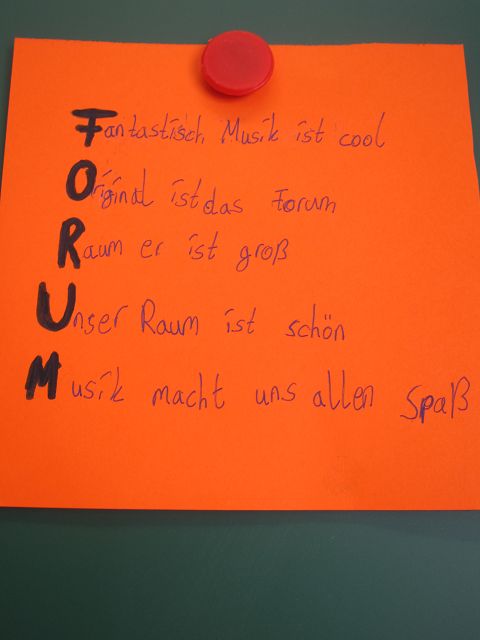 Fantastisch Musik ist cool
Original ist das Forum
Raum er ist groß
Unser Raum ist schön
Musik macht uns allen Spaß